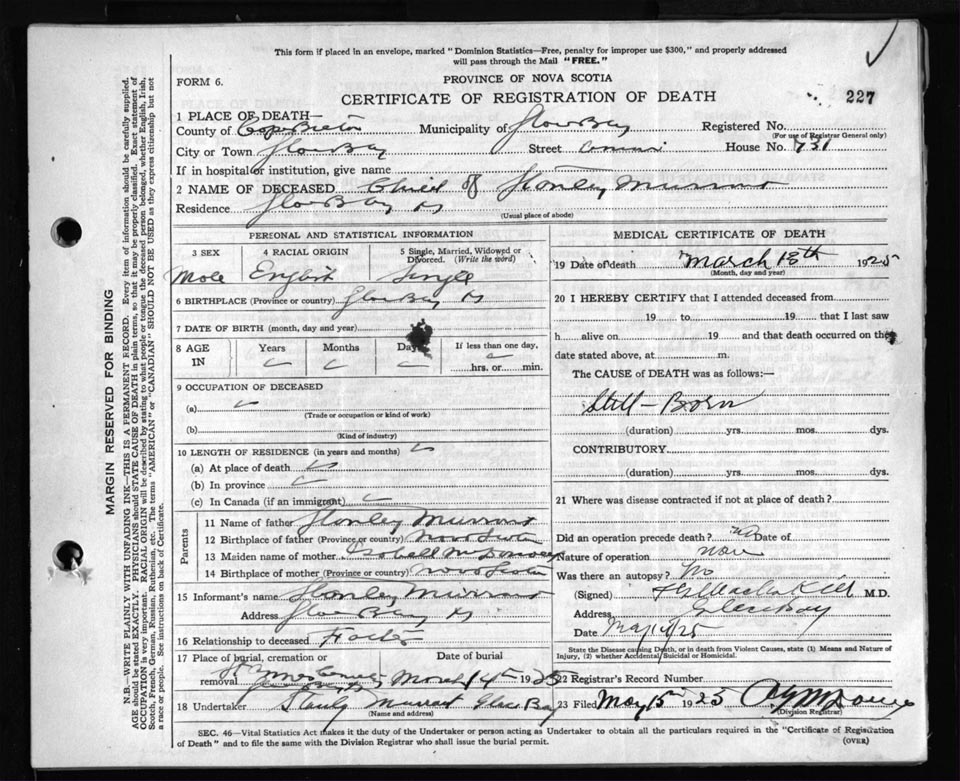 This form if placed in an envelope, marked "Dominion Statistics—Free, penalty for improper use $300," and properly addressed
will pass through the Mail "FREE."
FORM 6.
PROVINCE OF NOVA SCOTIA
CERTIFICATE OF REGISTRATION OF DEATH
227
1 PLACE OF DEATH—
County of Cape Breton Municipality of Glace Bay Registered No.
(For use of Registrar General only)
City or Town Glace Bay Street House No. 731
If in hospital or institution, give name
2 NAME OF DECEASED Child of Stanley Murrant
Residence Glace Bay
(Usual place of abode)
PERSONAL AND STATISTICAL INFORMATION
3 SEX
4 RACIAL ORIGIN
5 Single, Married, Widowed or
Divorced. (Write the word)
Male English Single
6 BIRTHPLACE (Province or country) Glace Bay
7 DATE OF BIRTH (month, day and year)
8 AGE
IN
Years
Months
Days
If less than one day,
hrs. or min.
9 OCCUPATION OF DECEASED
(a)
(Trade or occupation or kind of work)
(b)
(Kind of industry)
10 LENGTH OF RESIDENCE (in years and months)
(a) At place of death
(b) In province
(c) In Canada (if an immigrant)
Parents
11 Name of father Stanley Murrant
12 Birthplace of father (Province or country) Nova Scotia
13 Maiden name of mother
14 Birthplace of mother (Province or country) Nova Scotia
15 Informant's name Stanley Murrant
Address Glace Bay
16 Relationship to deceased Father
17 Place of burial, cremation or
removal
Date of burial
March 14th 1925
18 Undertaker Murrant Glace Bay
(Name and address)
MEDICAL CERTIFICATE OF DEATH
19 Date of death March 13th 1925
(Month, day and year)
20 I HEREBY CERTIFY that I attended deceased from
19 to 19 that I last saw
h alive on 19 and that death occurred on the
date stated above, at m.
The CAUSE of DEATH was as follows:—
Still-Born
(duration) yrs. mos. dys.
CONTRIBUTORY
(duration) yrs. mos. dys.
21 Where was disease contracted if not at place of death?
Did an operation precede death? no Date of
Nature of operation none
Was there an autopsy? No
(Signed) M.D.
Address Glace Bay
Date
State the Disease causing Death, or in death from Violent Causes, state (1) Means and Nature of
Injury, (2) whether Accidental, Suicidal or Homicidal.
22 Registrar's Record Number
23 Filed May 15 1925
Division Registrar
SEC. 46—Vital Statistics Act makes it the duty of the Undertaker or person acting as Undertaker to obtain all the particulars required in the "Certificate of Registration
of Death" and to file the same with the Division Registrar who shall issue the burial permit.
(OVER)
MARGIN RESERVED FOR BINDING
N.B.—WRITE PLAINLY WITH UNFADING INK—THIS IS A PERMANENT RECORD. Every item of information should be carefully supplied.
AGE should be stated EXACTLY. PHYSICIANS should STATE CAUSE OF DEATH in plain terms, so that it may be properly classified. Exact statement of
OCCUPATION is very important. RACIAL ORIGIN will be described by stating to what people or tongue the deceased person belonged, whether English, Irish,
Scotch, French, German, Russian, Ruthenian, etc. The terms "AMERICAN" or "CANADIAN" SHOULD NOT BE USED as they express citizenship but not
a race or people. See instructions on back of Certificate.